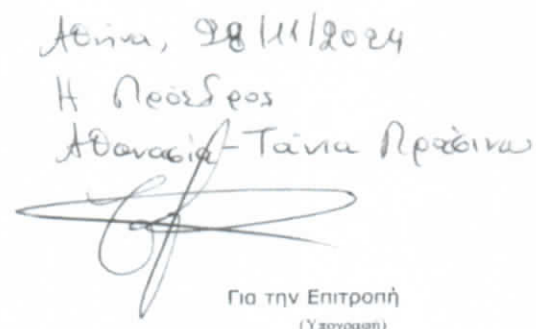 Αθήνα, 28/11/2024
Η Πρόεδρος
Αθανασία-Τάνια
Για την Επιτροπή
(Υπογραφή)